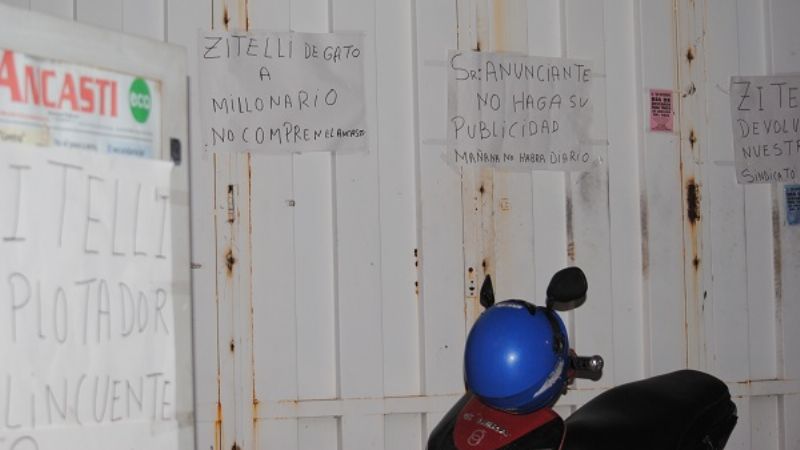 ANCASTI
eco
ITELLI
PLOTADOR
LINCUENTE
ZITELLI DE GATO
A
MILLONARIO
NO COMPREN EL ANCASTI
SR: ANUNCIANTE
NO HAGA SU
PUBLICIDAD
MAÑANA NO HABRA DIARIO
ZITE
DEVOLU
NUESTR
SINDICATO